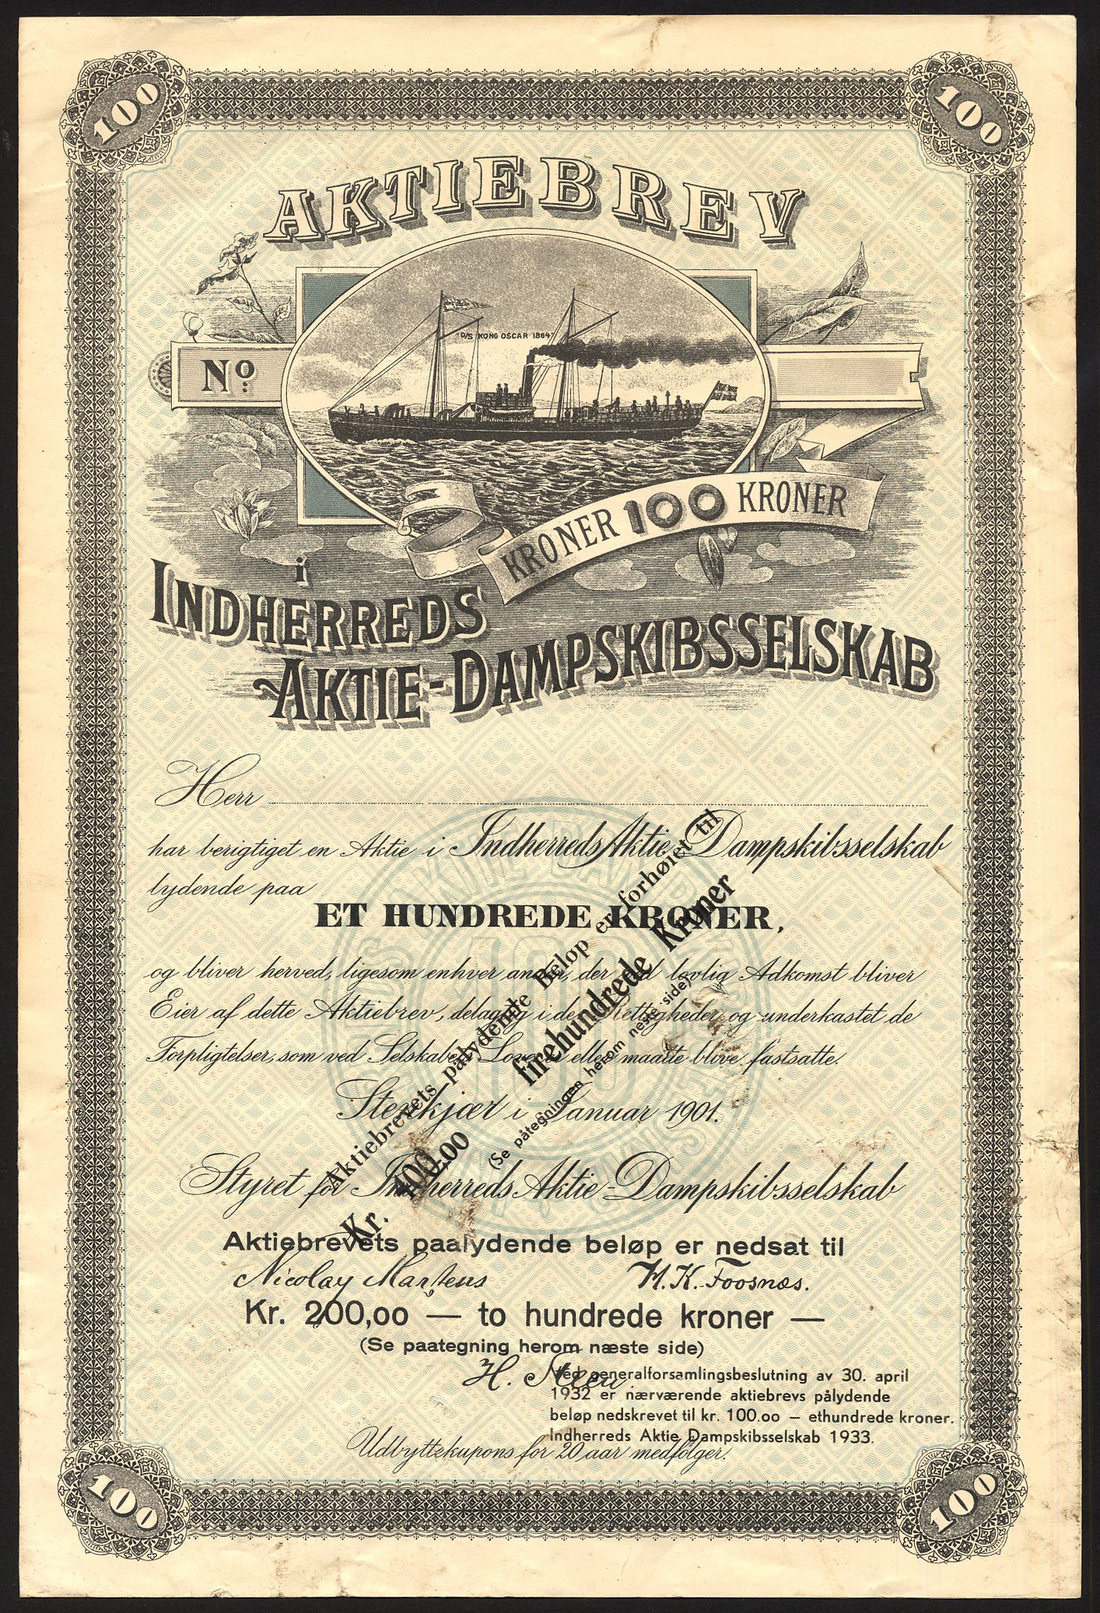 100
100
AKTIEBREV
D/S KONG OSCAR 1864
No
KRONER 100 KRONER
i
INDHERREDS
AKTIE-DAMPSKIBSSELSKAB
Herr
har berigtiget en Aktie i Indherreds Aktie Dampskibsselskab
lydende paa
ET HUNDREDE KRONER,
og bliver herved, ligesom enhver anden, der ved lovlig Adkomst bliver
Eier af dette Aktiebrev, delagtig i de Rettigheder og underkastet de
Forpligtelser, som ved Selskabets Love er eller maatte blive fastsatte.
Stenkjær i Januar 1901.
Styret for Indherreds Aktie-Dampskibsselskab
Aktiebrevets pålydende Beløp er forhøiet til
Kr. 400.00 firehundrede Kroner
(Se påtegningen herom neste side)
Aktiebrevets paalydende beløp er nedsat til
Nicolay Martens H. K. Foosnæs.
Kr. 200,00 — to hundrede kroner —
(Se paategning herom næste side)
H. Steen
Ved generalforsamlingsbeslutning av 30. april
1932 er nærværende aktiebrevs pålydende
beløp nedskrevet til kr. 100.00 — ethundrede kroner.
Indherreds Aktie Dampskibsselskab 1933.
Udbyttekupons for 20 aar medfølger.
100
100